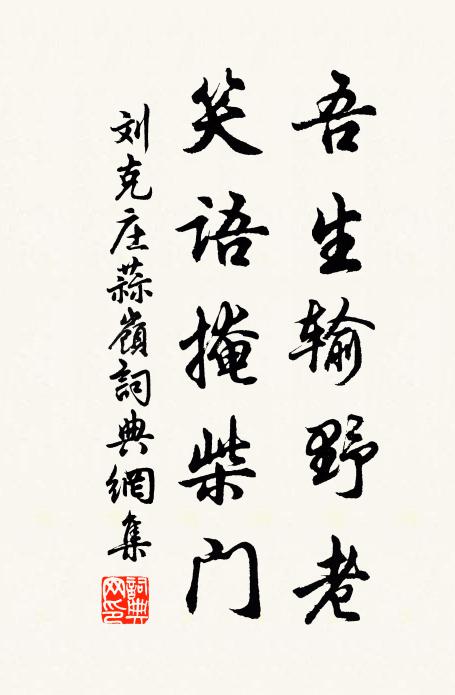 吾生输野老
笑語掩柴门
刘克庄蒜嶺詞典網集
詞典网印